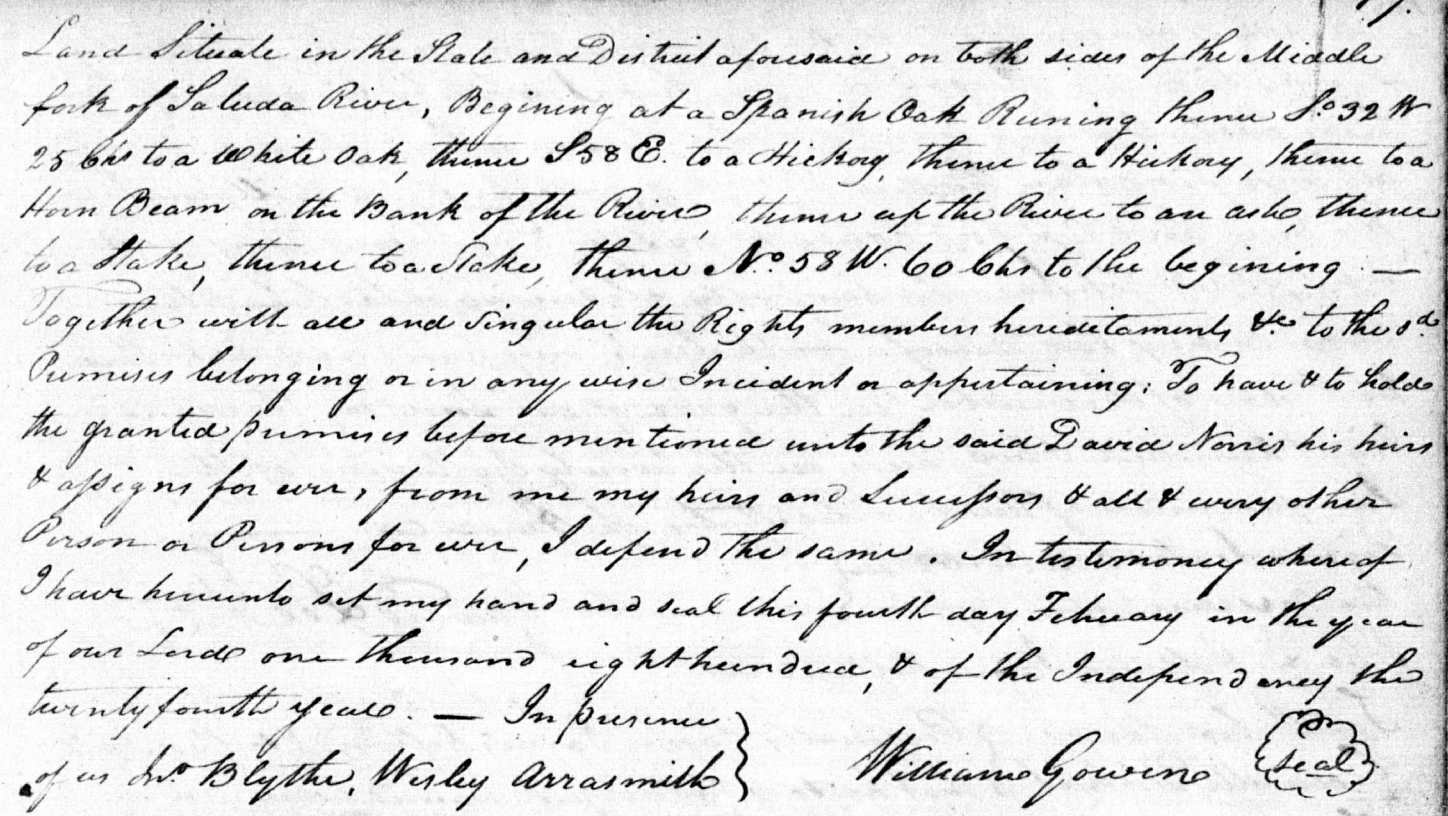 Land Situate in the State and District aforesaid on both sides of the Middle
fork of Saluda River, Begining at a Spanish Oak Runing thence So. 32 W
25 Chs to a White Oak, thence S 58 E. to a Hickory, thence to a Hickory, thence to a
Horn Beam on the Bank of the River, thence up the River to an ash, thence
to a Stake, thence to a Stake, thence No. 58 W. 60 Chs to the begining. —
Together with all and Singular the Rights members hereditaments &c. to the sd.
Premises belonging or in any wise Incident or appertaining: To have & to hold
the granted premises before mentioned unto the said David Norris his heirs
& assigns for ever, from me my heirs and Successors & all & every other
Person or Persons for ever, I defend the same. In testimoney whereof
I have hereunto set my hand and seal this fourth day February in the year
of our Lord one thousand eight hundred, & of the Independency the
twenty fourth year. — In presence
of us Jno. Blythe, Wesley Arrasmith
William Gowen
Seal